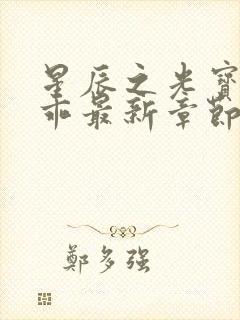 星辰之光寶
乖最新章節
鄭多强